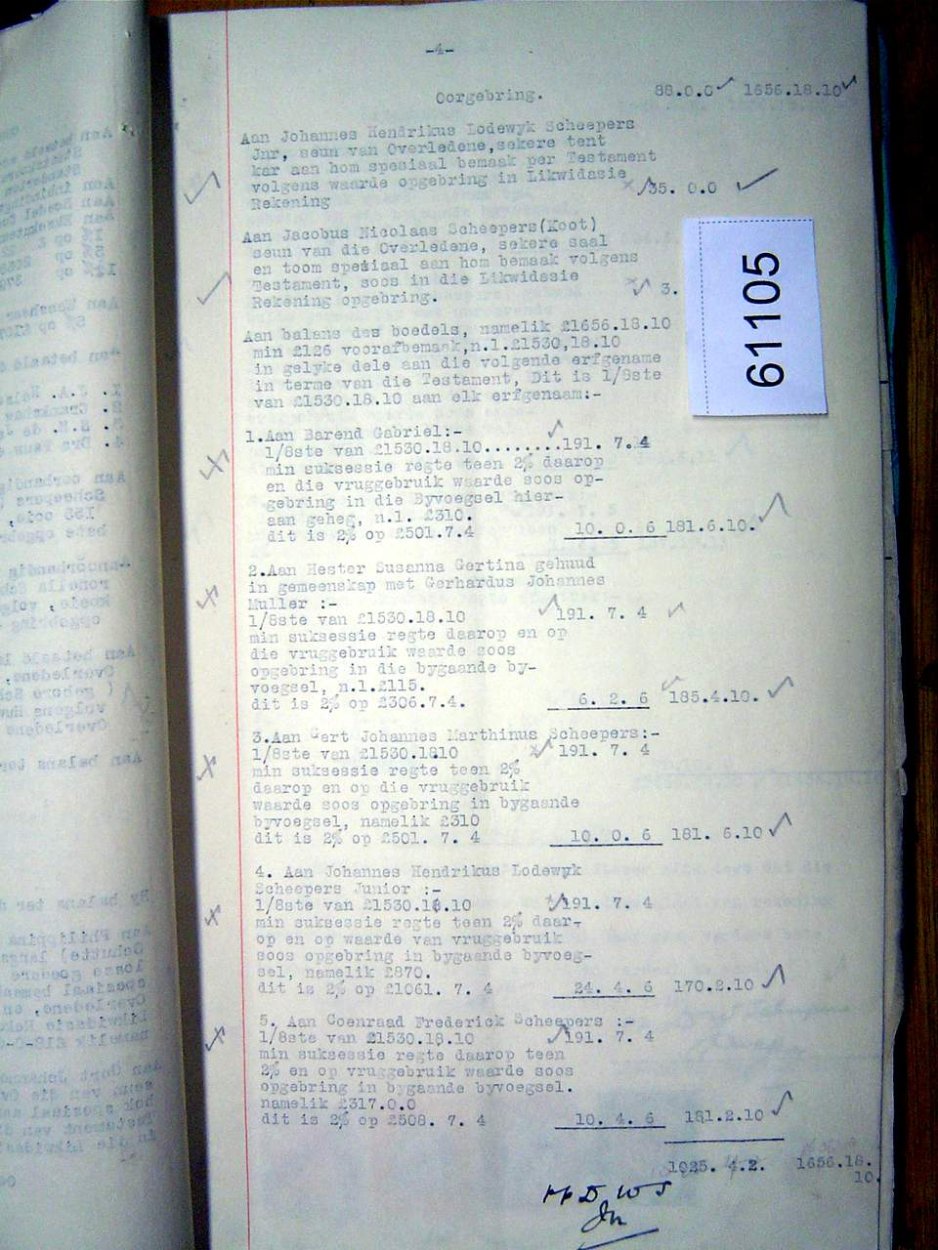 -4-
Oorgebring. 88.0.0 1656.18.10
Aan Johannes Hendrikus Lodewyk Scheepers
Jnr, seun van Overledene,sekere tent
kar aan hom spesiaal bemaak per Testament
volgens waarde opgebring in Likwidasie
Rekening 35. 0.0
Aan Jacobus Nicolaas Scheepers(Koot)
seun van die Overledene, sekere saal
en toom spesiaal aan hom bemaak volgens
Testament, soos in die Likwidasie
Rekening opgebring. 3.
61105
Aan balans des boedels, namelik £1656.18.10
min £126 voorafbemaak,n.l.£1530,18.10
in gelyke dele aan die volgende erfgename
in terme van die Testament, Dit is 1/8ste
van £1530.18.10 aan elk erfgenaam:-
1.Aan Barend Gabriel:-
1/8ste van £1530.18.10........191. 7.4
min suksessie regte teen 2% daarop
en die vruggebruik waarde soos op-
gebring in die Byvoegsel hier-
aan geheg, n.l. £310.
dit is 2% op £501.7.4 10. 0. 6 181.6.10.
2.Aan Hester Susanna Gertina gehuud
in gemeenskap met Gerhardus Johannes
Muller :-
1/8ste van £1530.18.10 191. 7. 4
min suksessie regte daarop en op
die vruggebruik waarde soos
opgebring in die bygaande by-
voegsel, n.l.£115.
dit is 2% op £306.7.4. 6. 2. 6 185.4.10.
3.Aan Gert Johannes Marthinus Scheepers:-
1/8ste van £1530.1810 191. 7. 4
min suksessie regte teen 2%
daarop en op die vruggebruik
waarde soos opgebring in bygaande
byvoegsel, namelik £310
dit is 2% op £501. 7. 4 10. 0. 6 181. 6.10
4. Aan Johannes Hendrikus Lodewyk
Scheepers Junior :-
1/8ste van £1530.18.10 191. 7. 4
min suksessie regte teen 2% daar-
op en op waarde van vruggebruik
soos opgebring in bygaande byvoeg-
sel, namelik £870.
dit is 2% op £1061. 7. 4 24. 4. 6 170.2.10
5. Aan Coenraad Frederick Scheepers :-
1/8ste van £1530.18.10 191. 7. 4
min suksessie regte daarop teen
2% en op vruggebruik waarde soos
opgebring in bygaande byvoegsel.
namelik £317.0.0
dit is 2% op £508. 7. 4 10. 4. 6 181.2.10
1025. 4.2. 1656.18.
10.